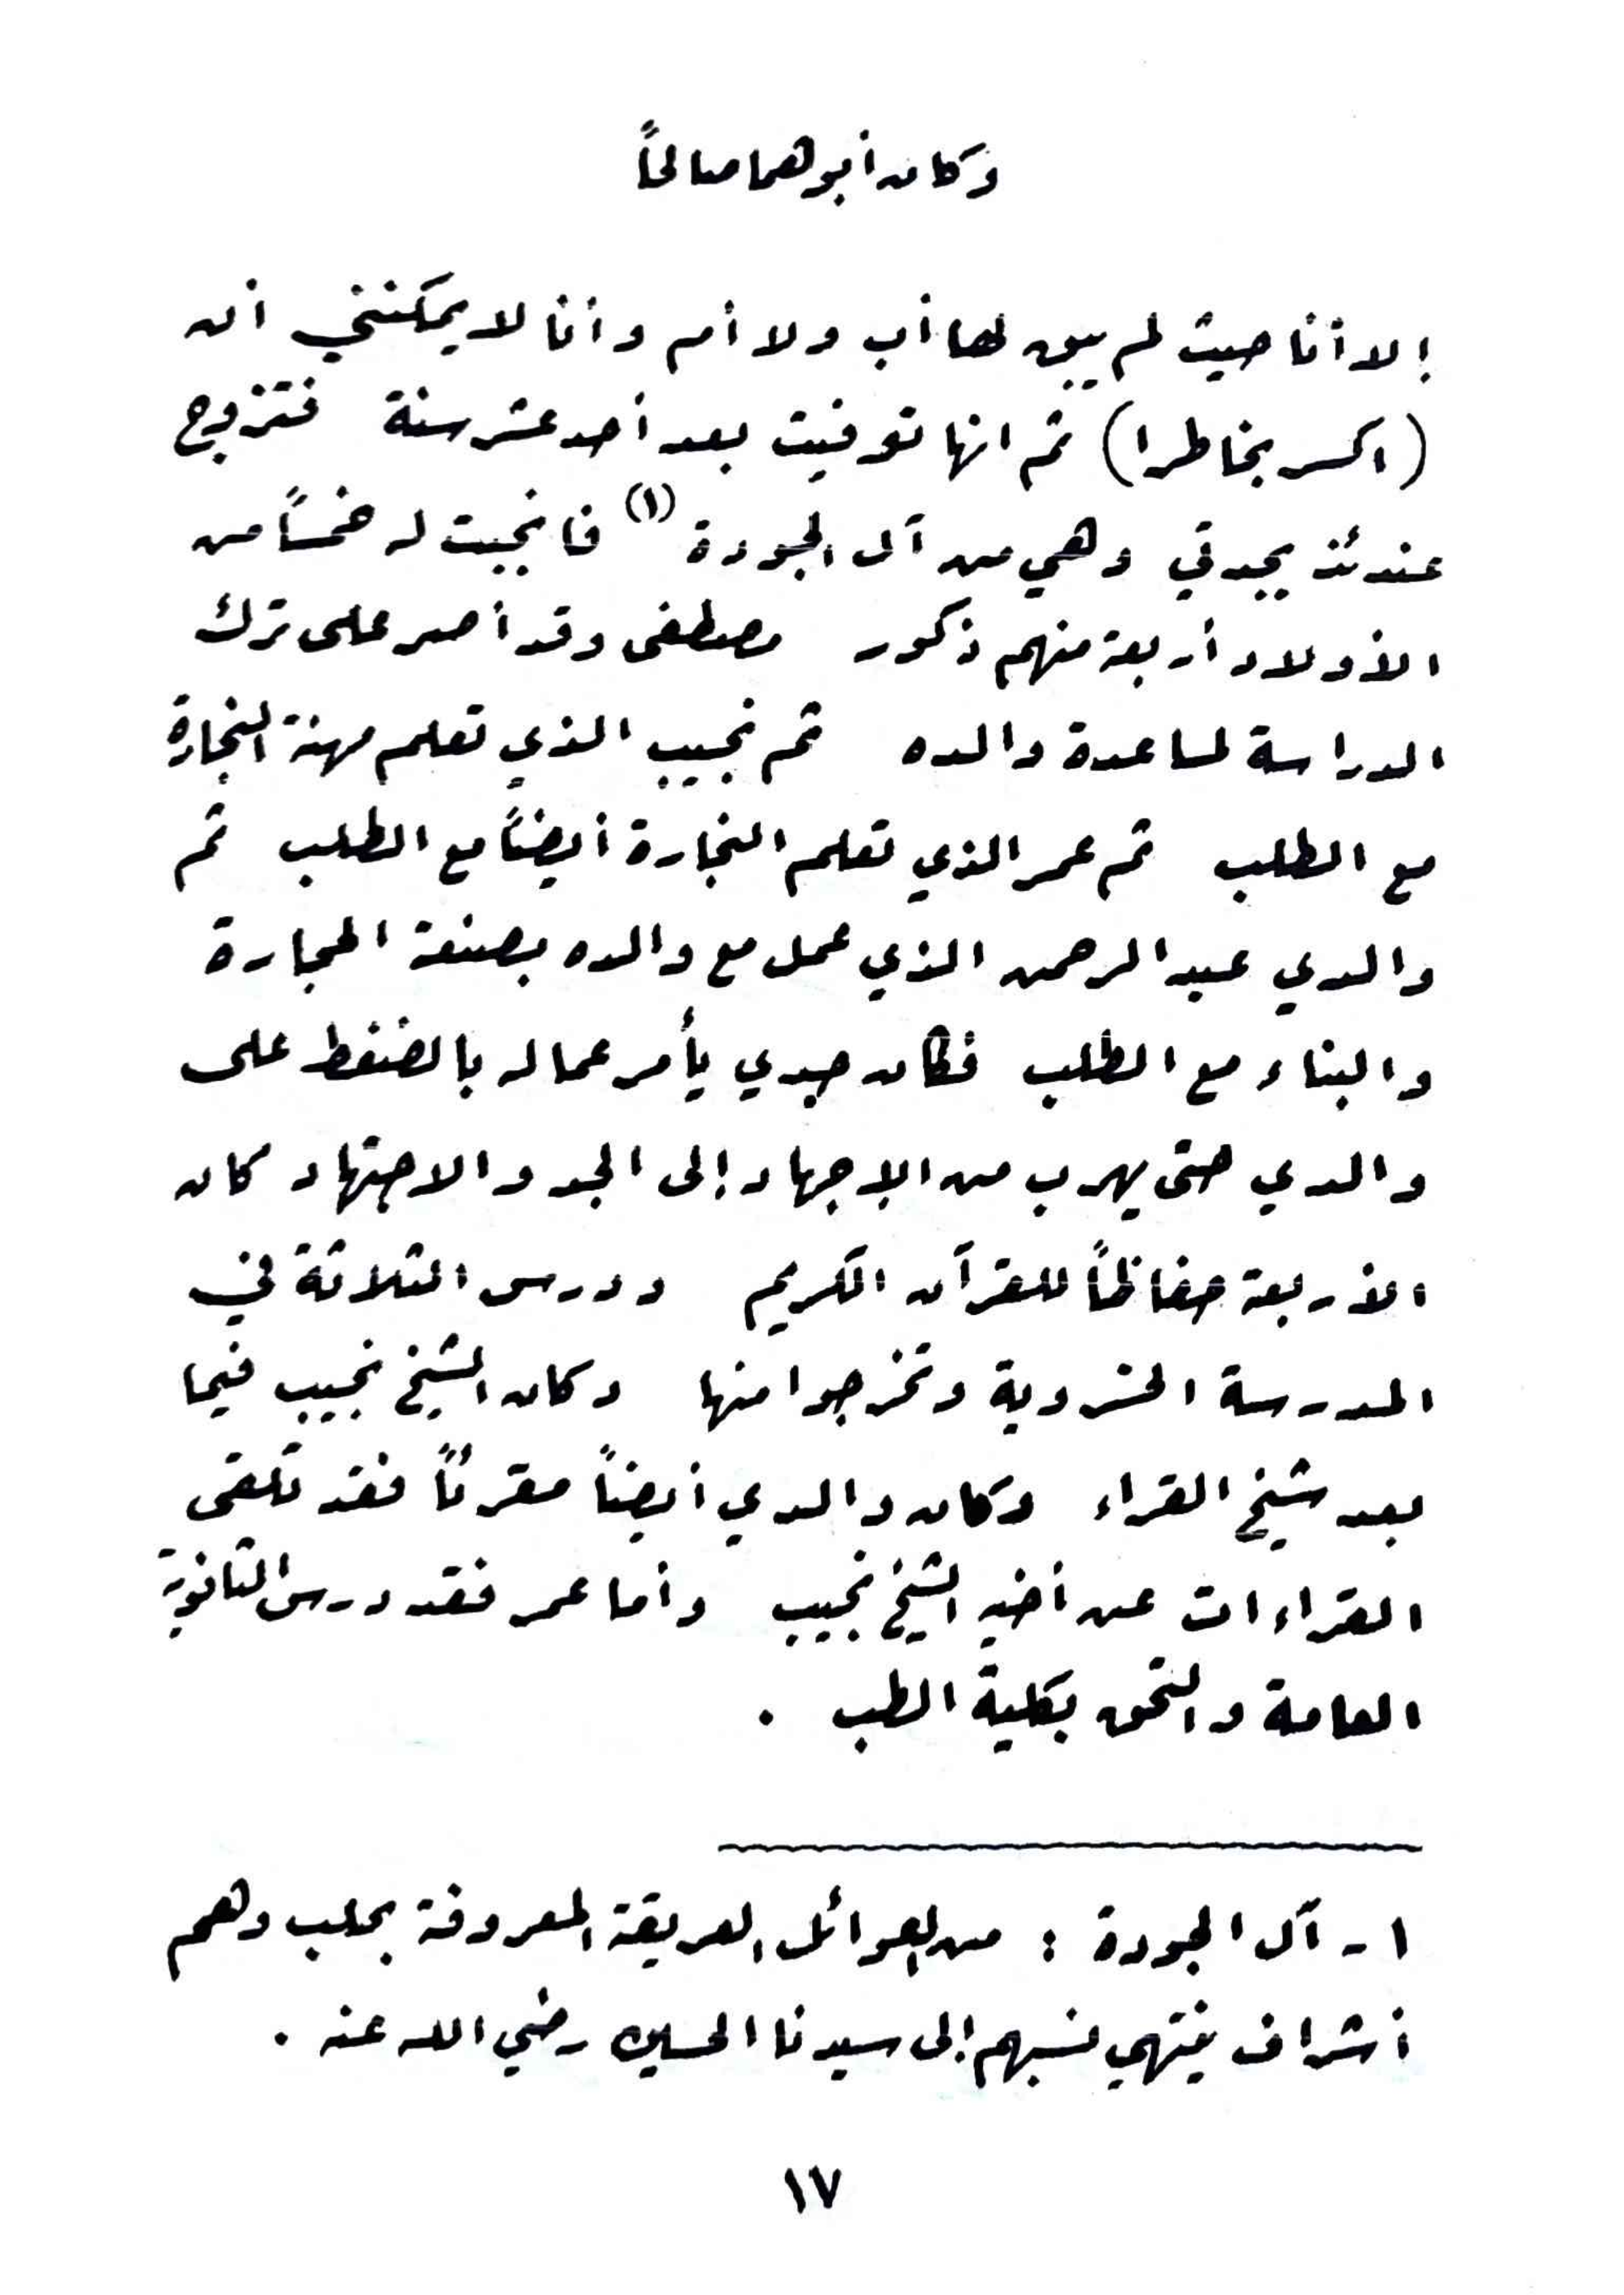 وكان أبوهما صالحاً
إلا أنا حيث لم يبق لها أب ولا أم وأنا لا يمكنني أن
(اكسر بخاطرا) ثم انها توفيت بعد أحد عشر سنة فتزوج
عندئذ بجدتي وهي من آل الجودة (١) فانجبت له خمساً من
الأولاد أربعة منهم ذكور مصطفى وقد أصر على ترك
الدراسة لمساعدة والده ثم نجيب الذي تعلم مهنة النجارة
مع الطلب ثم عمر الذي تعلم النجارة أيضاً مع الطلب ثم
والدي عبد الرحمن الذي عمل مع والده بصنعة الحجارة
والبناء مع الطلب فكان جدي يأمر عماله بالضغط على
والدي حتى يهرب من الإجهاد إلى الجد والاجتهاد كان
الأربعة حفاظاً للقرآن الكريم ودرس الثلاثة في
المدرسة الخسروية وتخرجوا منها وكان الشيخ نجيب فيما
بعد شيخ القراء وكان والدي أيضاً مقرئاً فقد تلقى
القراءات عن أخيه الشيخ نجيب وأما عمر فقد درس الثانوية
العامة والتحق بكلية الطب .
١ - آل الجودة : من العوائل العريقة المعروفة بحلب وهم
أشراف ينتهي نسبهم إلى سيدنا الحسين رضي الله عنه .
١٧